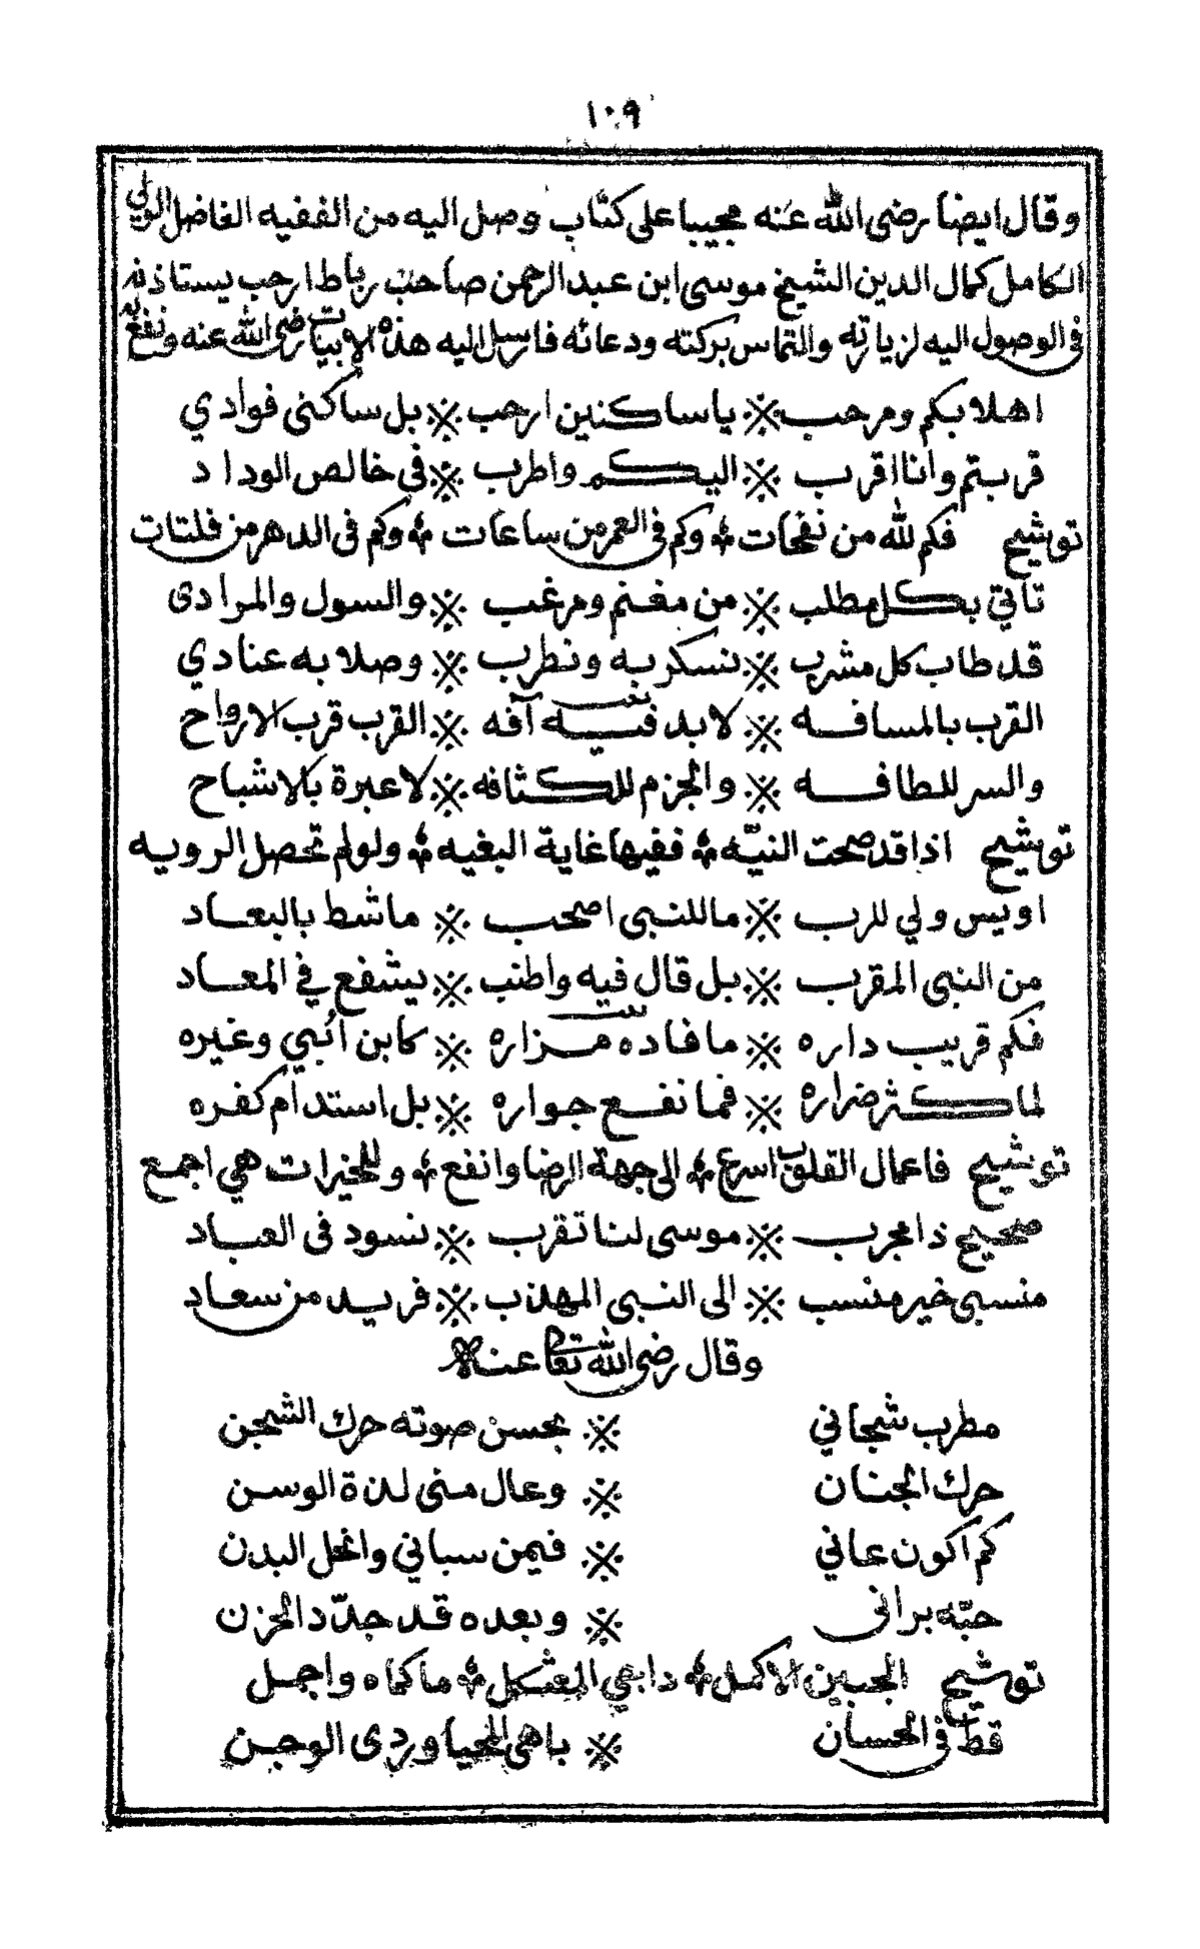 ١٠٩
وقال ايضا رضى الله عنه مجيبا على كتاب وصل اليه من الفقيه الفاضل الولي
الكامل كمال الدين الشيخ موسى ابن عبد الرحمن صاحب رباط ارحب يستاذنه
فى الوصول اليه لزيارته والتماس بركته ودعائه فارسل اليه هذه الابيات رضى الله عنه ونفع به
اهلا بكم ومرحب ※ يا ساكنين ارحب ※ بل ساكنى فوادي
قربتم وانا اقرب ※ اليكم واطرب ※ فى خالص الوداد
توشيح فكم لله من نفحات ؞ وكم فى العمر من ساعات ؞ وكم فى الدهر من فلتات
تاتي بكل مطلب ※ من مغنم ومرغب ※ والسول والمرادى
قد طاب كل مشرب ※ نسكر به ونطرب ※ وصلا به عنادي
القرب بالمسافه ※ لابد فيه آفه ※ القرب قرب الارواح
والسر للطافه ※ والجزم للكثافه ※ لا عبرة بالاشباح
توشيح اذا قد صحت النيّه ؞ ففيها غاية البغيه ؞ ولو لم تحصل الرويه
اويس ولي للرب ※ ما للنبى اصحب ※ ما شط بالبعاد
من النبى المقرب ※ بل قال فيه واطنب ※ يشفع في المعاد
فكم قريب داره ※ ما فاده مزاره ※ كابن اُبي وغيره
لما كثر ضراره ※ فما نفع جواره ※ بل استدام كفره
توشيح فاعمال القلوب اسرع ؞ الى جهة الرضا وانفع ؞ وللخيرات هي اجمع
صحيح ذا مجرب ※ موسى لنا تقرب ※ نسود فى العباد
منسبى خير منسب ※ الى النبى المهذب ※ فريد من سعاد
وقال رضى الله تعالى عنه
مطرب شجاني ※ بحسن صوته حرك الشجن
حرك الجنان ※ وعال منى لذة الوسن
كم اكون عاني ※ فيمن سباني وانحل البدن
حبّه برانى ※ وبعده قد جدّد الحزن
توشيح الجبين الاكمل ؞ داعي المشكل ؞ ما كماه واجمل
قط فى الحسان ※ باهى المحيا وردى الوجن